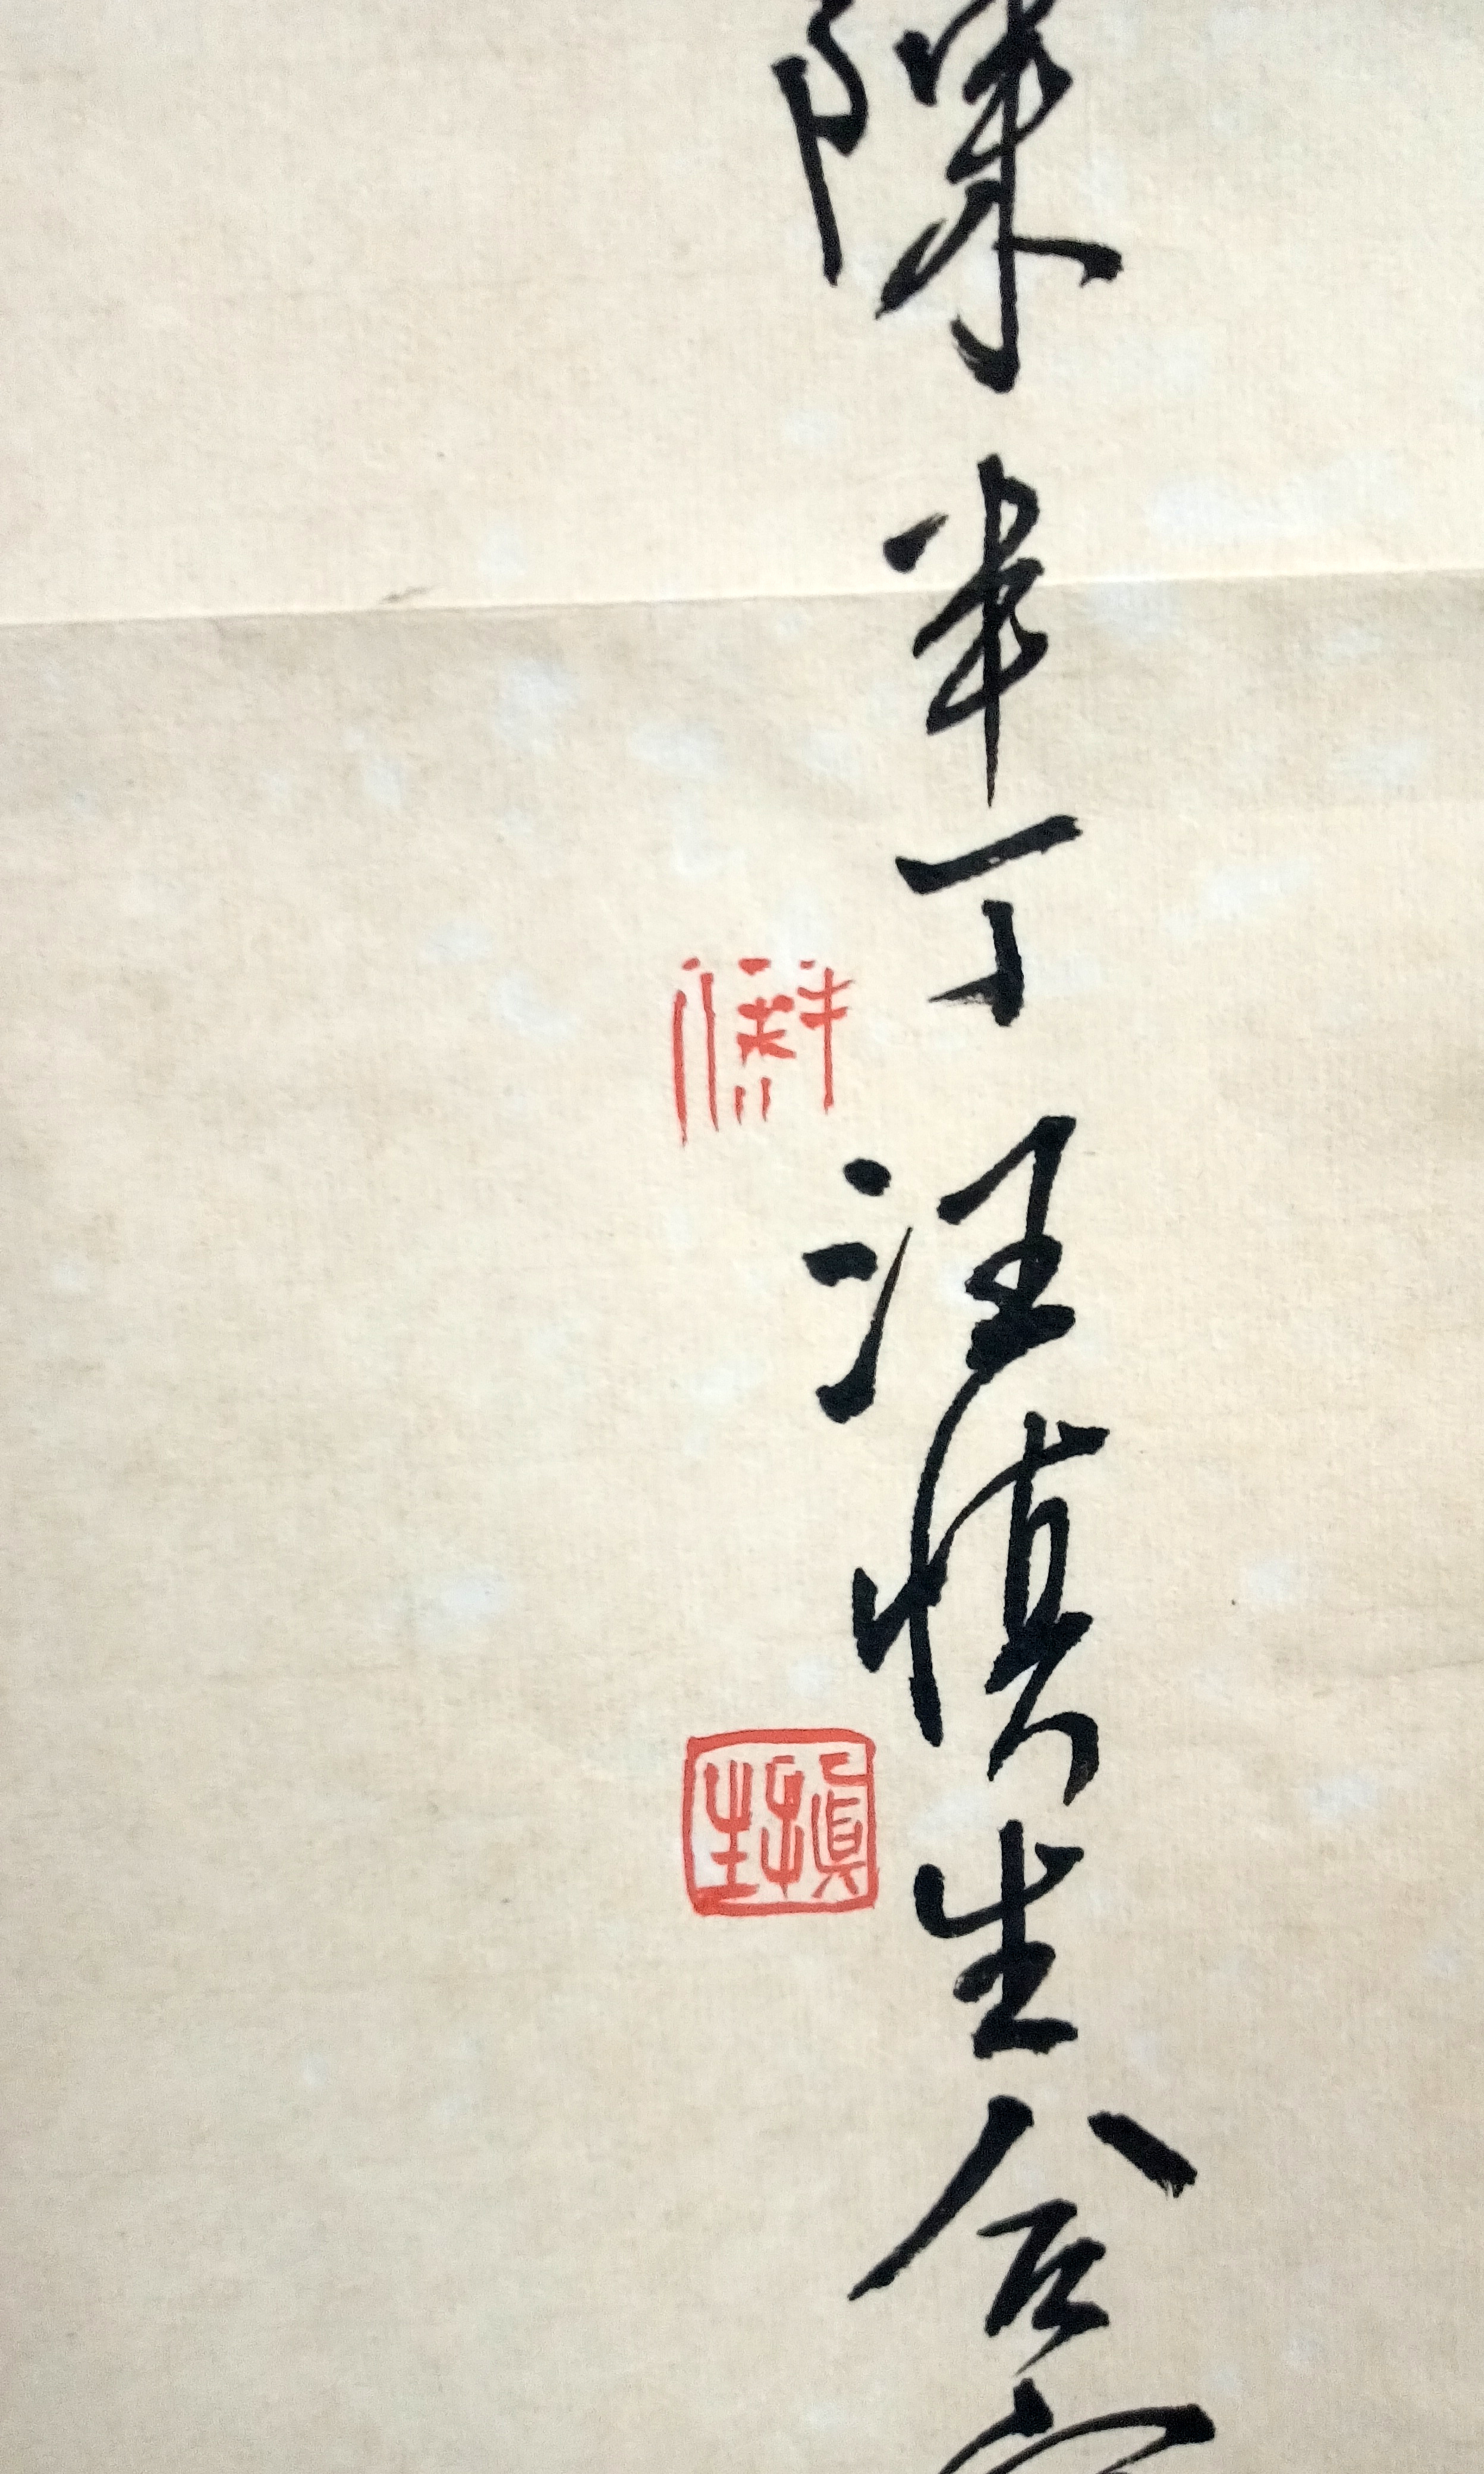 陳半丁汪慎生合
慎生